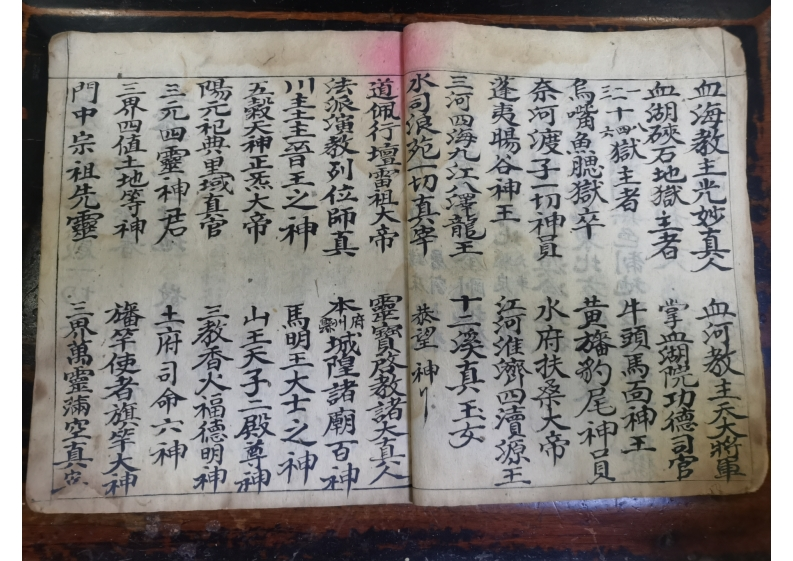 血海教主光妙真人 血河教主天大將軍
血湖硤石地獄主者 掌血湖院功德司官
一十八二十四三十六獄主者 牛頭馬面神王
烏嘴魚腮獄卒 黄旛豹尾神員
奈河渡子一切神員 水府扶桑大帝
蓬夷暘谷神王 江河淮濟四瀆源王
三河四海九江八澤龍王 十二溪真玉女
水司浪苑一切真宰 恭望 神
道佩行壇雷祖大帝 靈寶啓教諸大真人
法派演教列位師真 本府州縣城隍諸廟百神
川主土主晉王之神 馬明王大士之神
五穀大神正炁大帝 山王天子二殿尊神
陽元祀典里域真官 三教香火福德明神
三元四靈神君 土府司命六神
三界四值土地等神 旛竿使者旗竿大神
門中宗祖先靈 三界萬靈滿空真宰